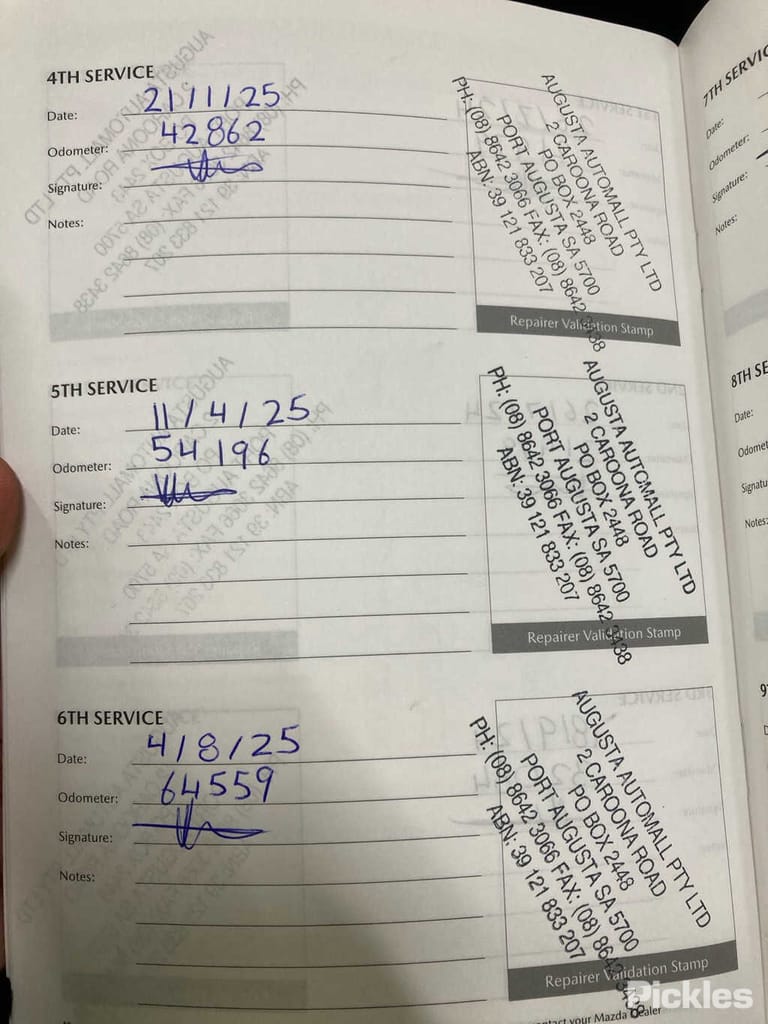 4TH SERVICE
Date: 21/1/25
Odometer: 42862
Signature:
Notes:
AUGUSTA AUTOMALL PTY LTD
2 CAROONA ROAD
PO BOX 2448
PORT AUGUSTA SA 5700
PH: (08) 8642 3066 FAX: (08) 8642 3438
ABN: 39 121 833 207
Repairer Validation Stamp
5TH SERVICE
Date: 11/4/25
Odometer: 54196
Signature:
Notes:
AUGUSTA AUTOMALL PTY LTD
2 CAROONA ROAD
PO BOX 2448
PORT AUGUSTA SA 5700
PH: (08) 8642 3066 FAX: (08) 8642 3438
ABN: 39 121 833 207
Repairer Validation Stamp
6TH SERVICE
Date: 4/8/25
Odometer: 64559
Signature:
Notes:
AUGUSTA AUTOMALL PTY LTD
2 CAROONA ROAD
PO BOX 2448
PORT AUGUSTA SA 5700
PH: (08) 8642 3066 FAX: (08) 8642 3438
ABN: 39 121 833 207
Repairer Validation Stamp
your Mazda Dealer
7TH SERVIC
Date:
Odometer:
Signature:
Notes:
8TH SE
Date:
Odomet
Signatu
Notes:
Pickles